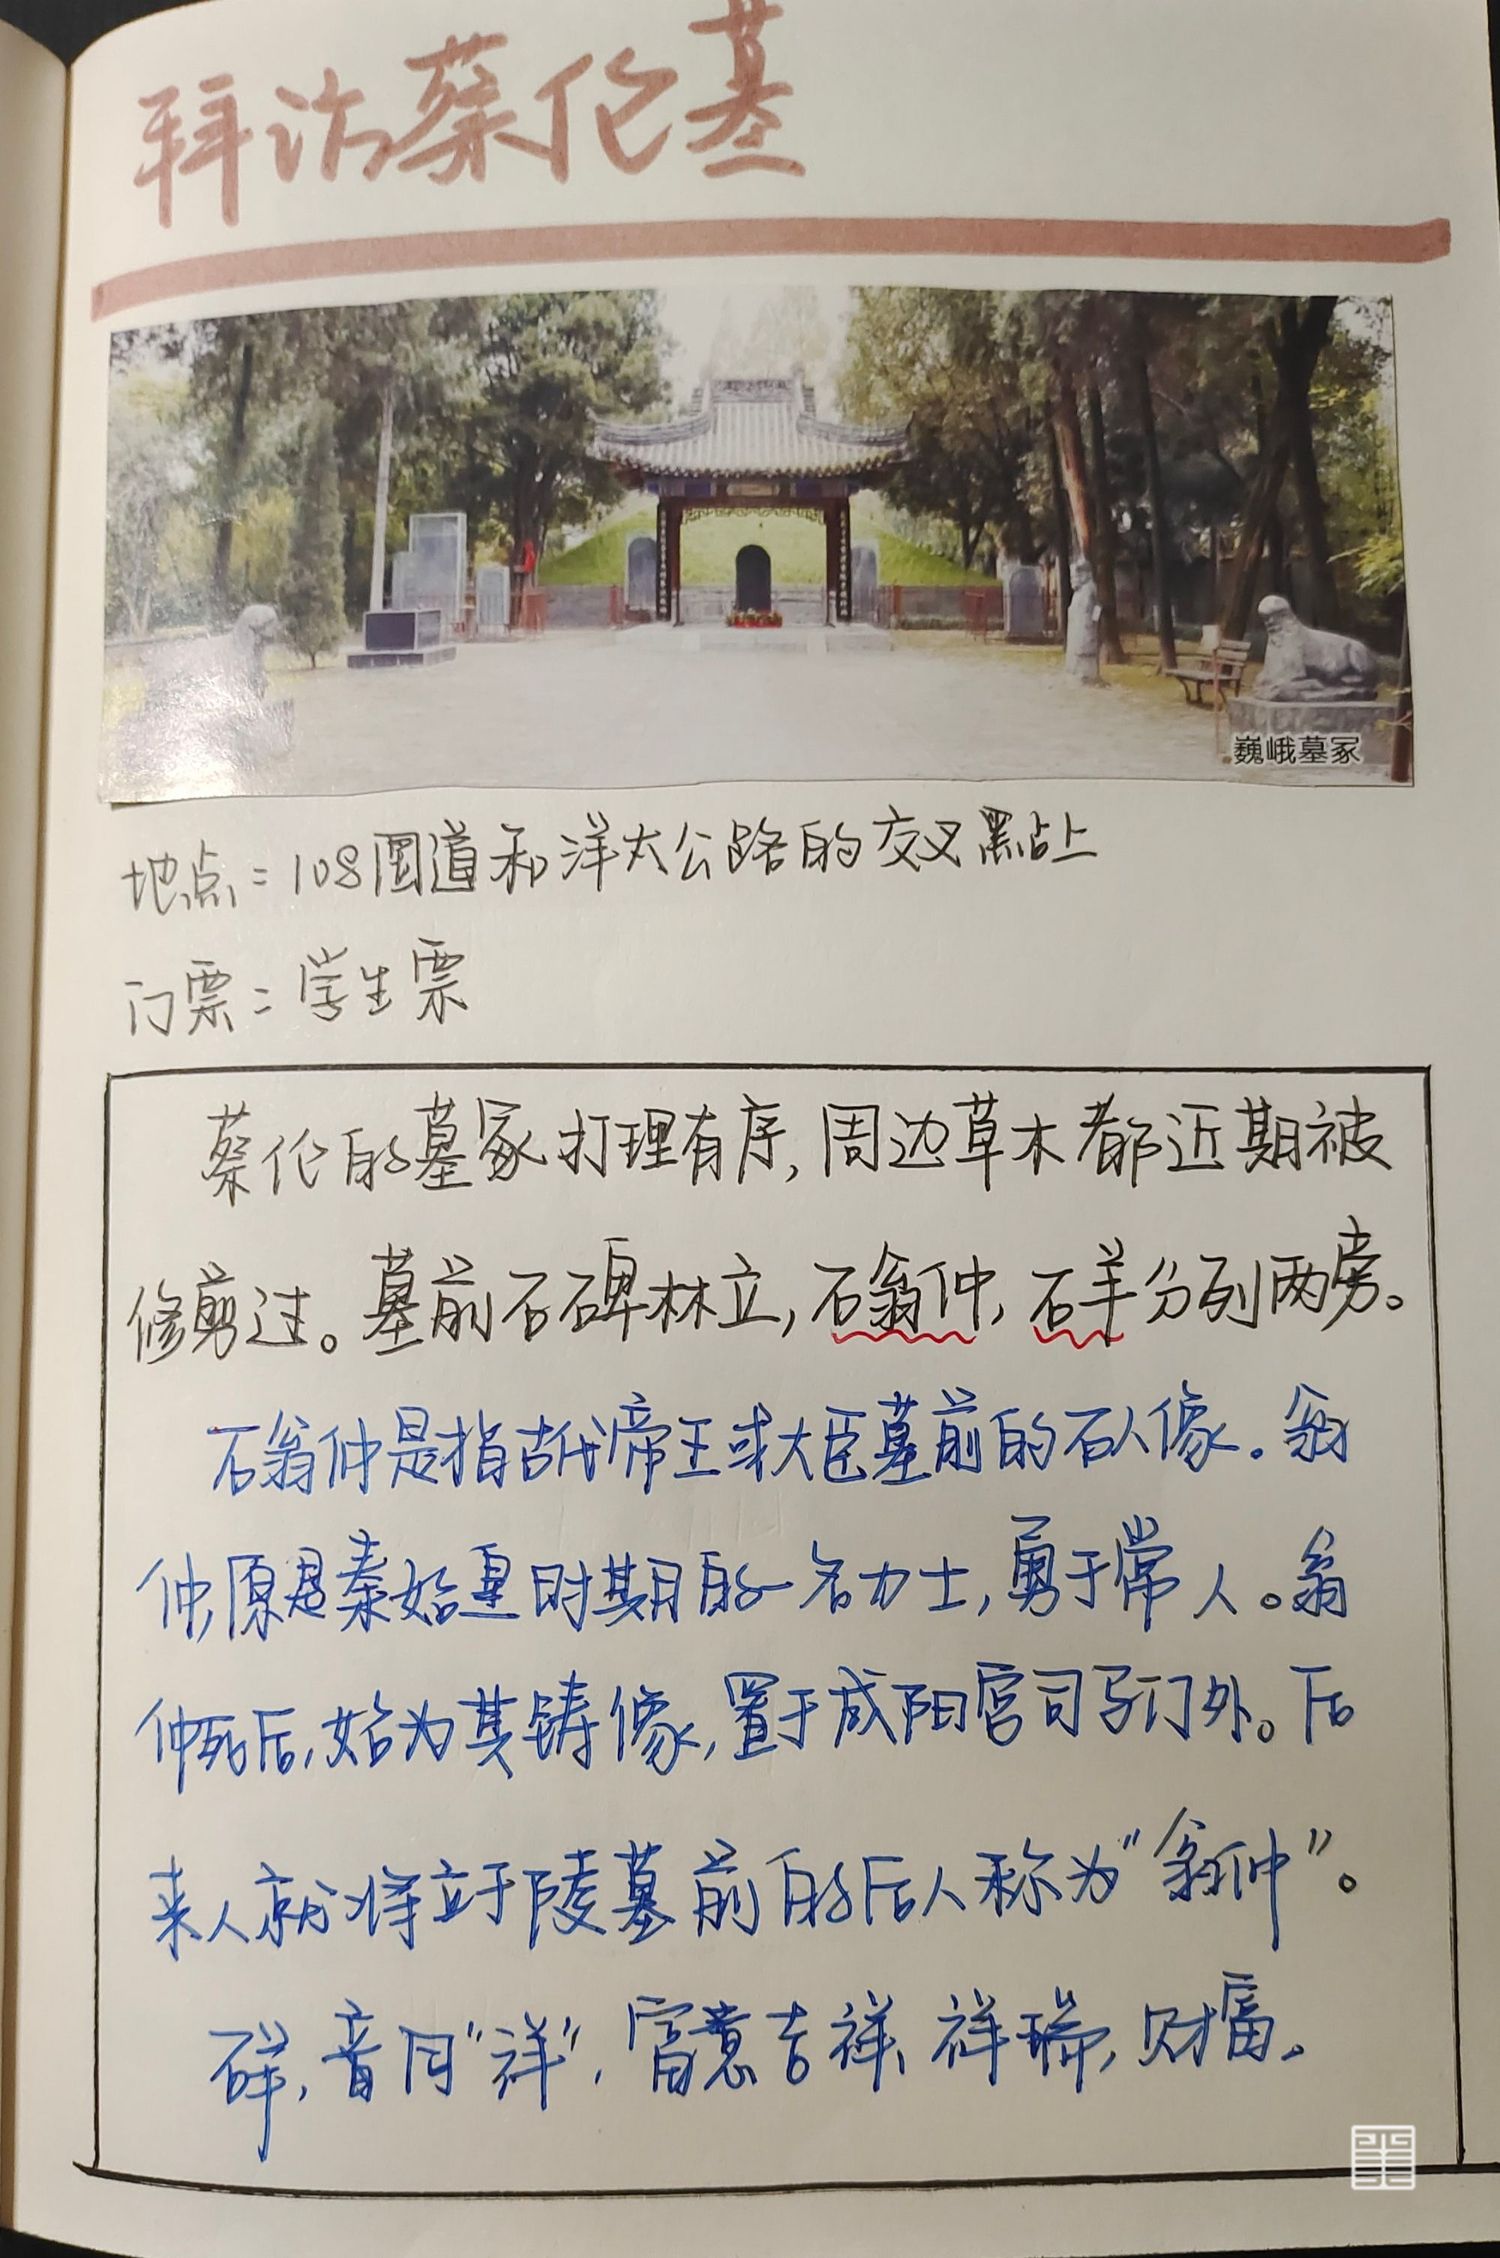 拜访蔡伦墓
巍峨墓冢
地点：108国道和洋太公路的交叉點上
门票：学生票
蔡伦的墓冢打理有序，周边草木都近期被
修剪过。墓前石碑林立，石翁仲，石羊分列两旁。
石翁仲是指古代帝王或大臣墓前的石人像。翁
仲，原是秦始皇时期的一名力士，勇于常人。翁
仲死后，始为其铸像，置于咸阳宫司马门外。后
来人就将立于陵墓前的后人称为“翁仲”。
羊，音同“祥”，富意吉祥、祥瑞，财富。